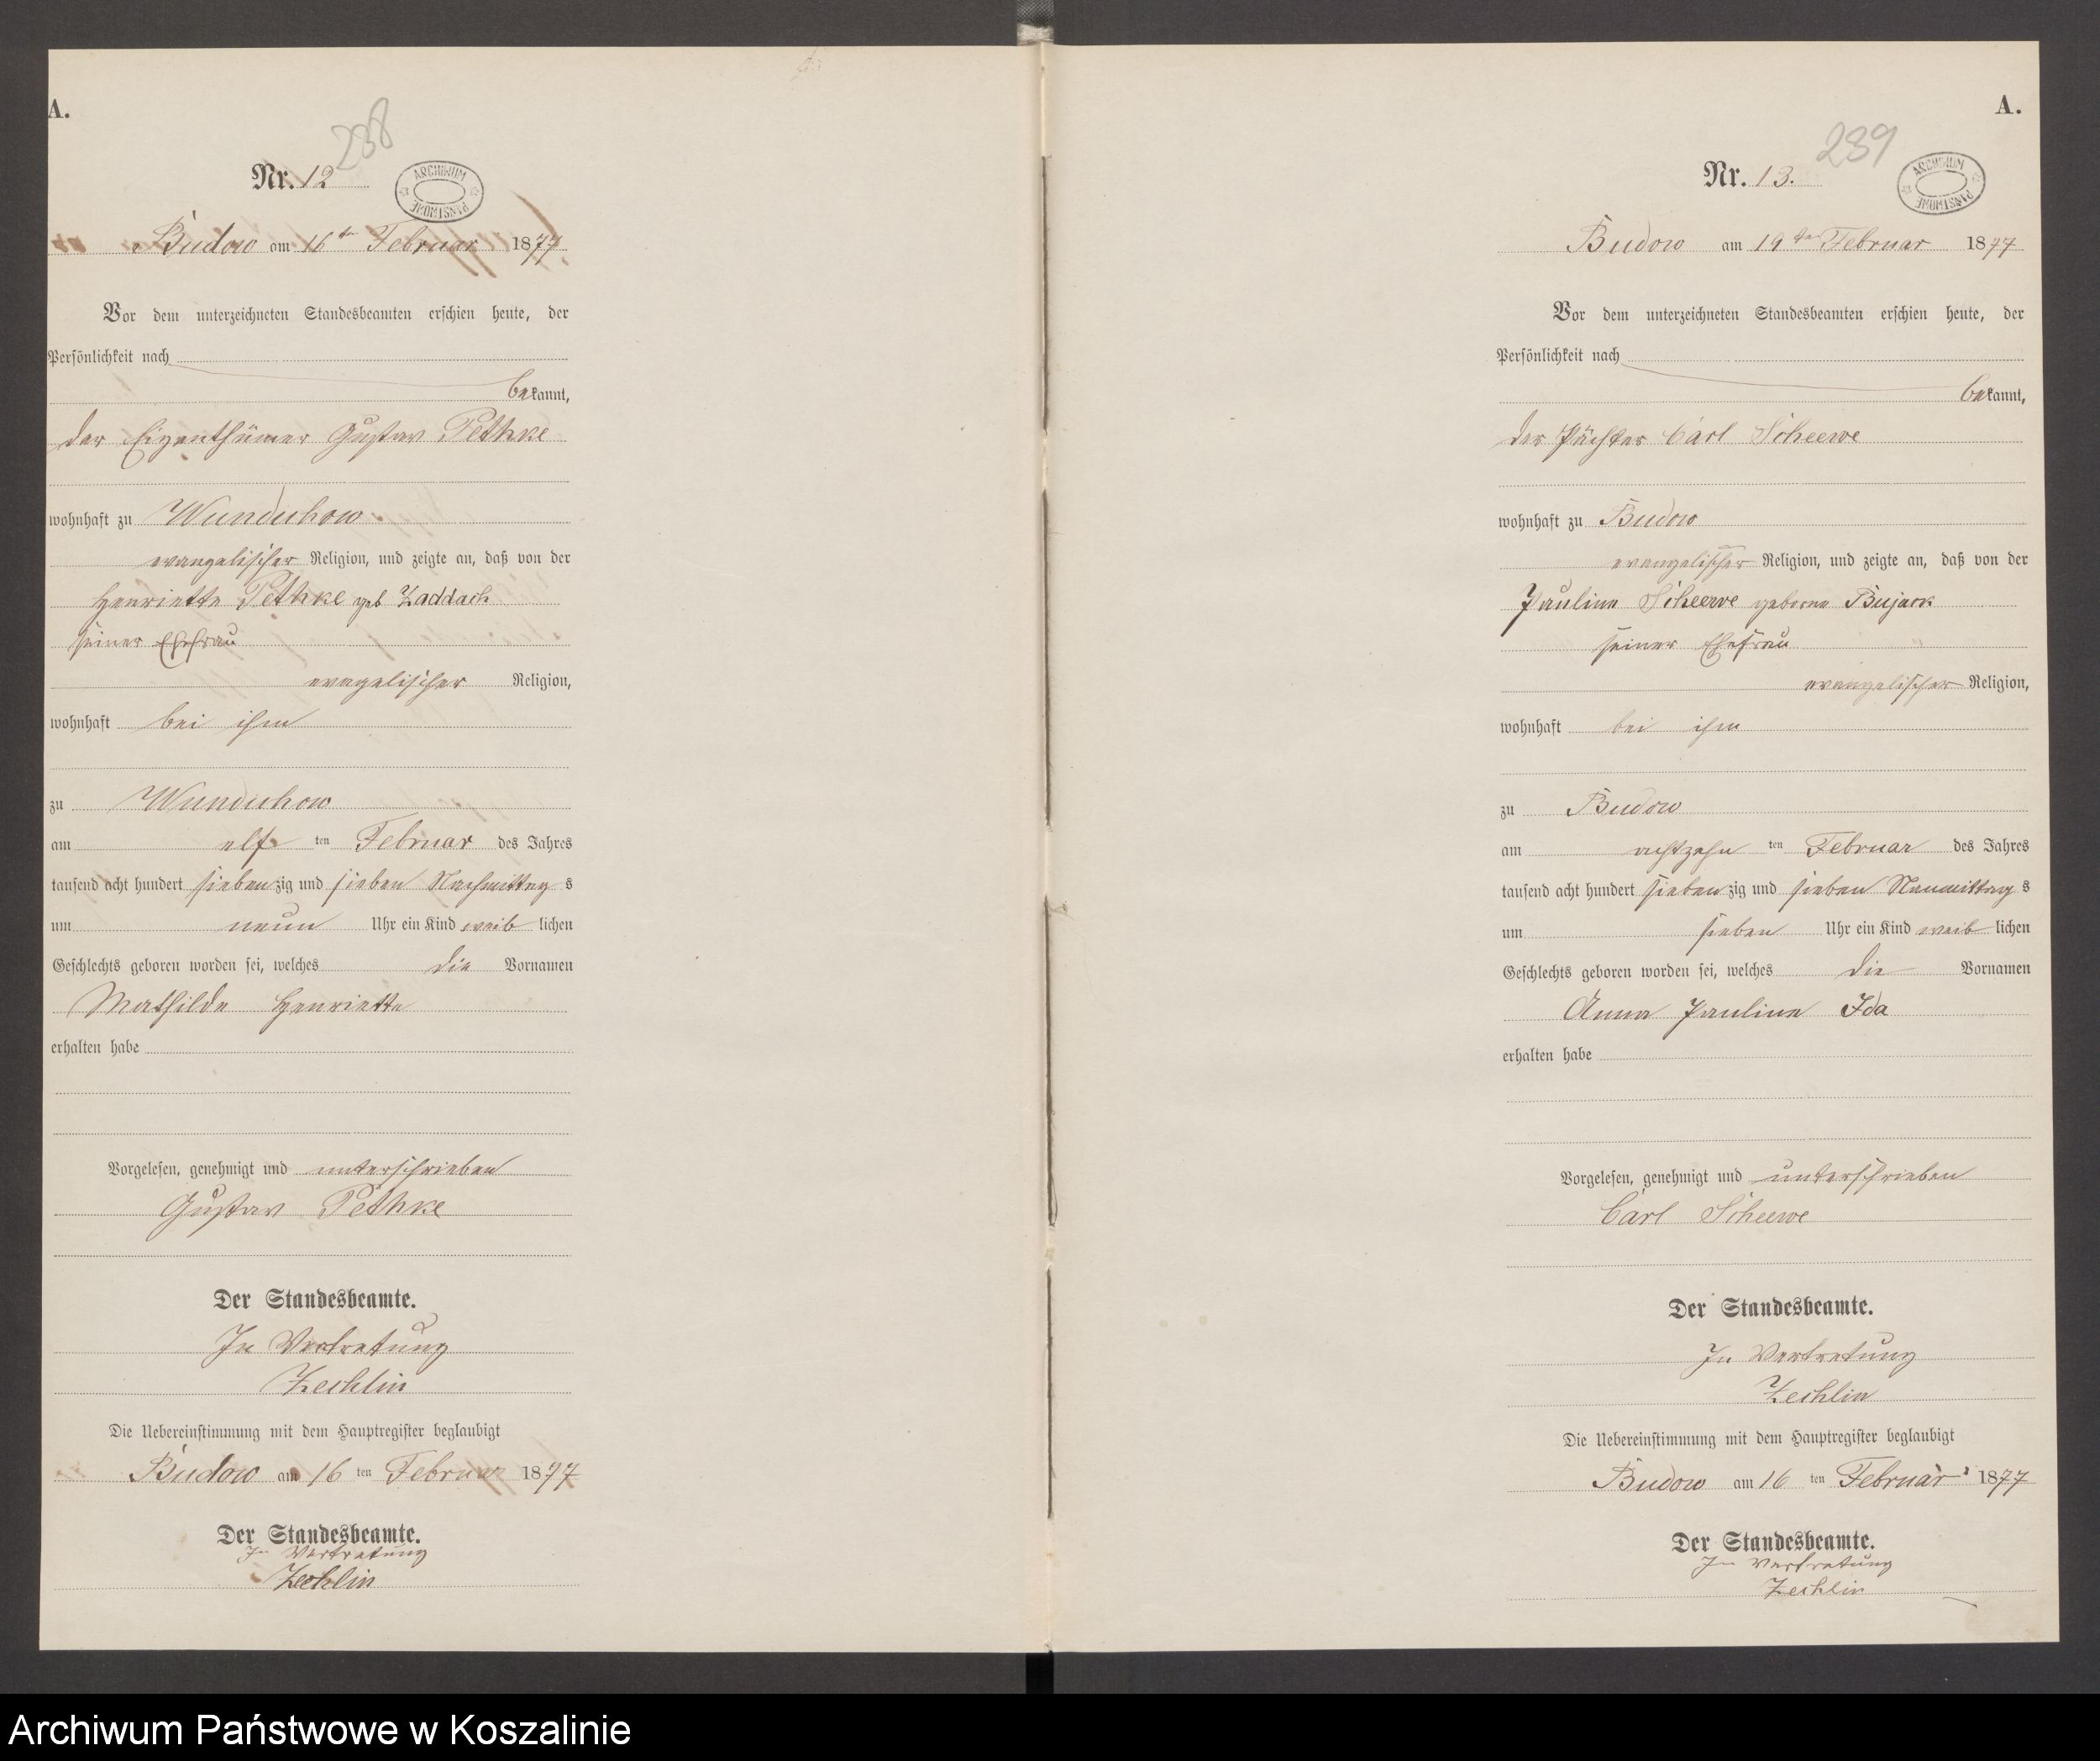 A.
288
Nr. 12
ARCHIWUM PAŃSTWOWE
Budow am 16ten Februar 1877
Vor dem unterzeichneten Standesbeamten erschien heute, der
Persönlichkeit nach
bekannt,
der Eigenthümer Gustav Pethke
wohnhaft zu Wunduchow
evangelischer Religion, und zeigte an, daß von der
Henriette Pethke geb Zaddach
seiner Ehefrau
evagelischer Religion,
wohnhaft bei ihm
zu Wunduchow
am elf ten Februar des Jahres
tausend acht hundert sieben zig und sieben Nachmittag s
um neun Uhr ein Kind weib lichen
Geschlechts geboren worden sei, welches die Vornamen
Mathilde Henriette
erhalten habe
Vorgelesen, genehmigt und unterschrieben
Gustav Pethke
Der Standesbeamte.
In Vertretung
Zechlin
Die Uebereinstimmung mit dem Hauptregister beglaubigt
Budow am 16 ten Februar 1877
Der Standesbeamte.
In Vertretung
Zechlin
A.
289
Nr. 13.
ARCHIWUM PAŃSTWOWE
Budow am 19ten Februar 1877
Vor dem unterzeichneten Standesbeamten erschien heute, der
Persönlichkeit nach
bekannt,
der Pächter Carl Scheewe
wohnhaft zu Budow
evangelischer Religion, und zeigte an, daß von der
Pauline Scheewe geborne Bujack
seiner Ehefrau
evangelischer Religion,
wohnhaft bei ihm
zu Budow
am achtzehn ten Februar des Jahres
tausend acht hundert sieben zig und sieben s
um sieben Uhr ein Kind weib lichen
Geschlechts geboren worden sei, welches die Vornamen
Anna Pauline Ida
erhalten habe
Vorgelesen, genehmigt und unterschrieben
Carl Scheewe
Der Standesbeamte.
In Vertretung
Zechlin
Die Uebereinstimmung mit dem Hauptregister beglaubigt
Budow am 16 ten Februar 1877
Der Standesbeamte.
In Vertretung
Zechlin
Archiwum Państwowe w Koszalinie